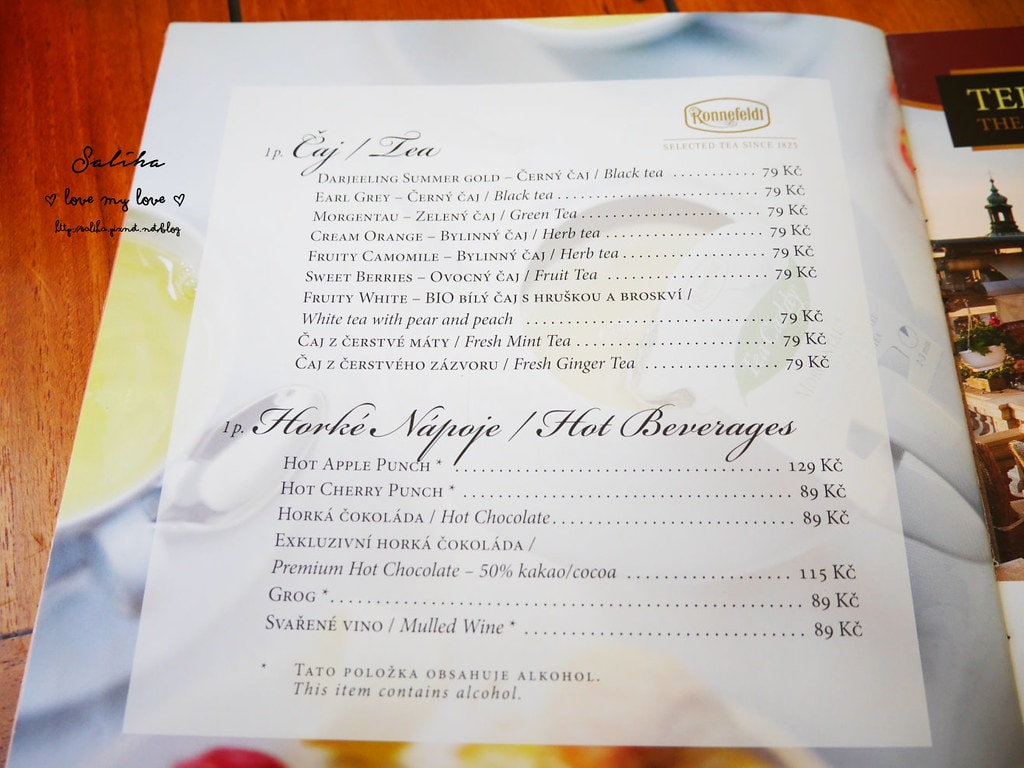 Saliha
♡ love my love ♡
Ronnefeldt
SELECTED TEA SINCE 1823
1 p. Čaj / Tea
DARJEELING SUMMER GOLD – ČERNÝ ČAJ / Black tea .......... 79 Kč
EARL GREY – ČERNÝ ČAJ / Black tea .......... 79 Kč
MORGENTAU – ZELENÝ ČAJ / Green Tea .......... 79 Kč
CREAM ORANGE – BYLINNÝ ČAJ / Herb tea .......... 79 Kč
FRUITY CAMOMILE – BYLINNÝ ČAJ / Herb tea .......... 79 Kč
SWEET BERRIES – OVOCNÝ ČAJ / Fruit Tea .......... 79 Kč
FRUITY WHITE – BIO BÍLÝ ČAJ S HRUŠKOU A BROSKVÍ /
White tea with pear and peach .......... 79 Kč
ČAJ Z ČERSTVÉ MÁTY / Fresh Mint Tea .......... 79 Kč
ČAJ Z ČERSTVÉHO ZÁZVORU / Fresh Ginger Tea .......... 79 Kč
1 p. Horké Nápoje / Hot Beverages
HOT APPLE PUNCH * .......... 129 Kč
HOT CHERRY PUNCH * .......... 89 Kč
HORKÁ ČOKOLÁDA / Hot Chocolate .......... 89 Kč
EXKLUZIVNÍ HORKÁ ČOKOLÁDA /
Premium Hot Chocolate – 50% kakao/cocoa .......... 115 Kč
GROG * .......... 89 Kč
SVAŘENÉ VINO / Mulled Wine * .......... 89 Kč
* TATO POLOŽKA OBSAHUJE ALKOHOL.
This item contains alcohol.